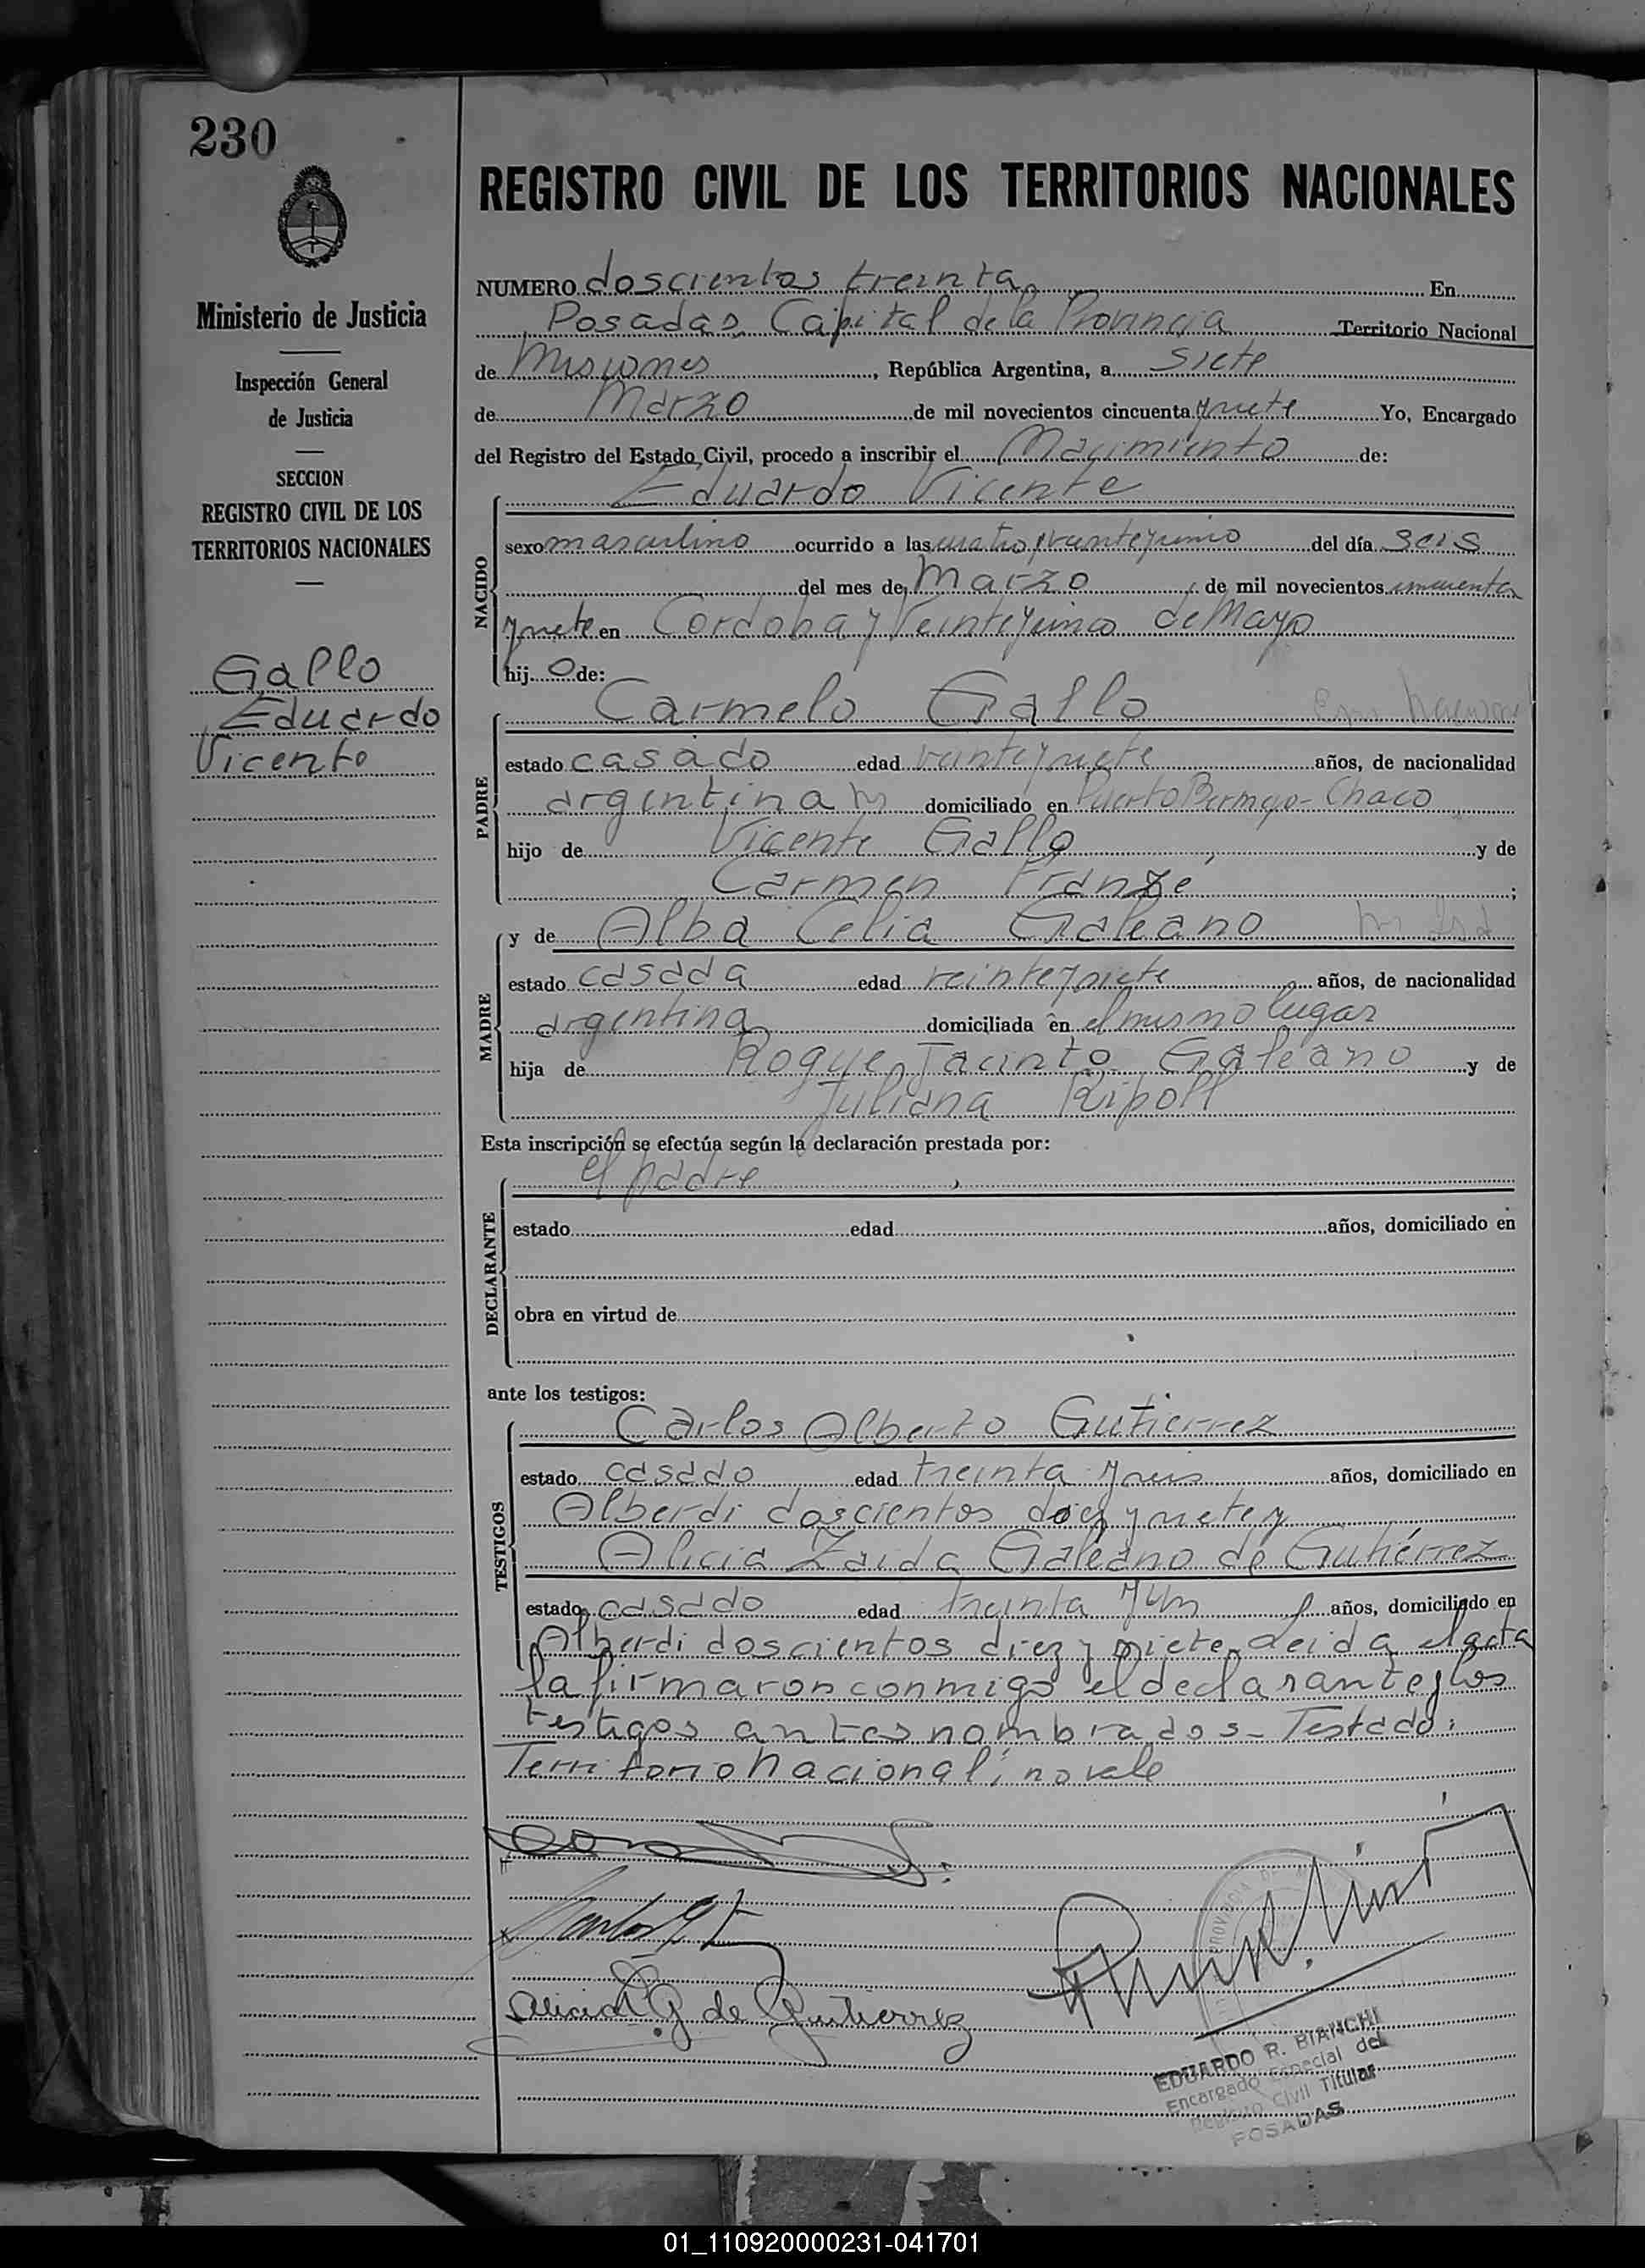 230
Ministerio de Justicia
Inspección General
de Justicia
SECCION
REGISTRO CIVIL DE LOS
TERRITORIOS NACIONALES
Gallo
Eduardo
Vicente
REGISTRO CIVIL DE LOS TERRITORIOS NACIONALES
NUMERO doscientos treinta En
Posadas, Capital de la Provincia Territorio Nacional
de Misiones, República Argentina, a siete
de Marzo de mil novecientos cincuenta y siete Yo, Encargado
del Registro del Estado Civil, procedo a inscribir el Nacimiento de:
NACIDO
Eduardo Vicente
sexo masculino ocurrido a las cuatro y veinteycinco del día seis
del mes de Marzo de mil novecientos cincuenta
y siete en Cordoba y Veinteycinco de Mayo
hij o de:
PADRE
Carmelo Gallo
estado casado edad veinteysiete años, de nacionalidad
argentina domiciliado en Puerto Bermejo - Chaco
hijo de Vicente Gallo y de
Carmen Franzé;
MADRE
y de Alba Celia Galeano
estado casada edad veinteysiete años, de nacionalidad
argentina domiciliada en el mismo lugar
hija de Roque Jacinto Galeano y de
Juliana Ripoll
Esta inscripción se efectúa según la declaración prestada por:
DECLARANTE
el padre
estado edad años, domiciliado en
obra en virtud de
ante los testigos:
TESTIGOS
Carlos Alberto Gutierrez
estado casado edad treinta y años, domiciliado en
Alberdi doscientos diez y siete y
Alicia Zaida Galeano de Gutiérrez
estado casado edad treinta y un años, domiciliado en
Alberdi doscientos diez y siete. Leida el acta
la firmaron conmigo el declarante y los
testigos antes nombrados - Testado:
Territorio Nacional; no vale
Alicia G de Gutierrez
PROVINCIA DE
EDUARDO R. BIANCHI
Encargado Especial del
Registro Civil Titular
POSADAS
01_110920000231-041701